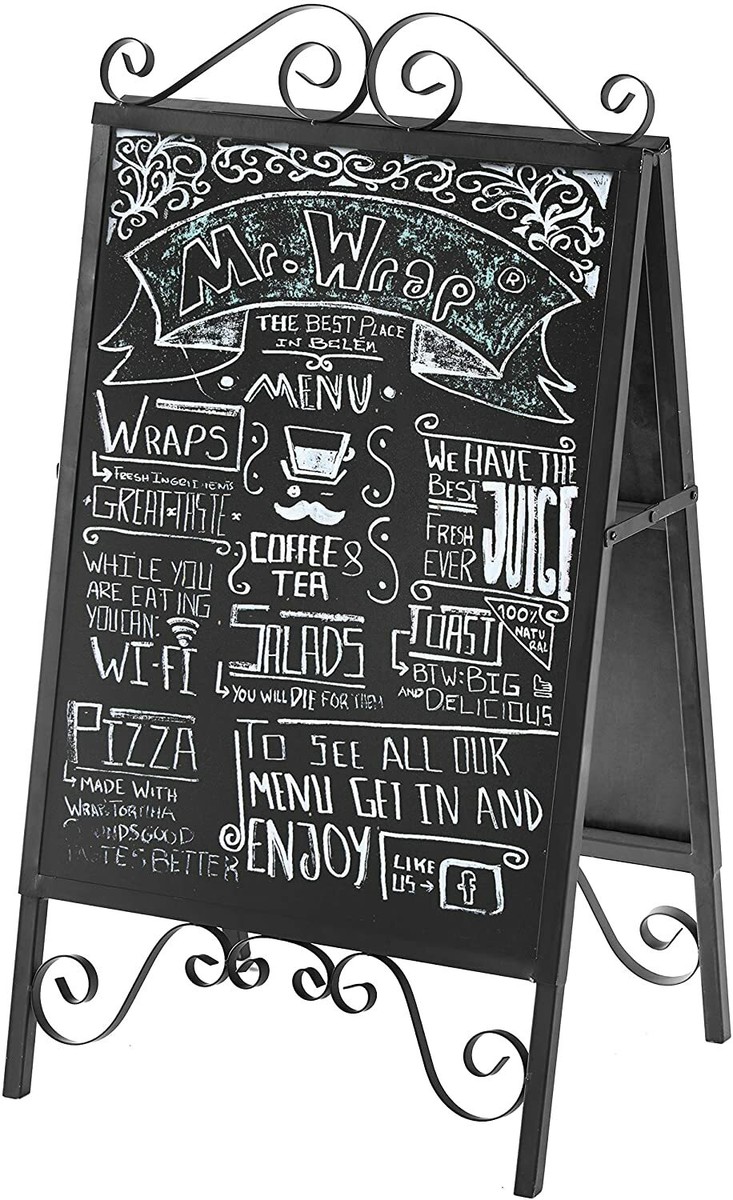 Mr. Wrap ®
THE BEST PLACE
IN BELÉM
MENU
WRAPS
FRESH INGREDIENTS
GREAT TASTE
WHILE YOU
ARE EATING
YOU CAN:
WI-FI
PIZZA
MADE WITH
WRAP TORTILHA
SOUNDS GOOD
TASTES BETTER
COFFEE &
TEA
SALADS
YOU WILL DIE FOR THEM
WE HAVE THE
BEST
JUICE
FRESH
EVER
100%
NATU
RAL
TOAST
BTW: BIG
AND DELICIOUS
TO SEE ALL OUR
MENU GET IN AND
ENJOY
LIKE
US
f